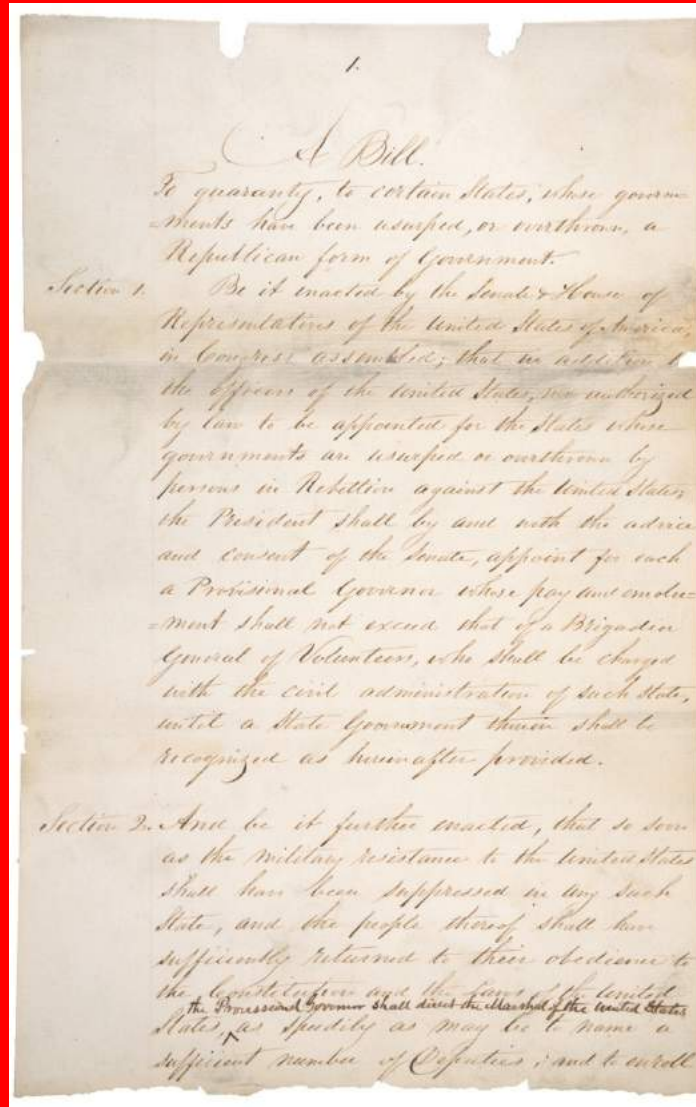 1.
A Bill.
To guaranty, to certain States, whose govern=
=ments have been usurped, or overthrown, a
Republican form of Government.
Section 1. Be it enacted by the Senate & House of
Representatives of the United States of America,
in Congress assembled; that in addition to
the officers of the United States, now authorized
by law to be appointed for the States whose
governments are usurped or overthrown by
persons in Rebellion against the United States;
the President shall by and with the advice
and consent of the Senate, appoint for each
a Provisional Governor whose pay and emolu=
=ment shall not exceed that of a Brigadier
General of Volunteers, who shall be charged
with the civil administration of such State,
until a State Government therein shall be
recognized as hereinafter provided.
Section 2. And be it further enacted, that so soon
as the military resistance to the United States
shall have been suppressed in any such
State, and the people thereof shall have
sufficiently returned to their obedience to
the Constitution and the Laws of the United
the Provisional Governor shall direct the Marshal of the United States
States, ^ as speedily as may be to name a
sufficient number of Deputies; and to enroll